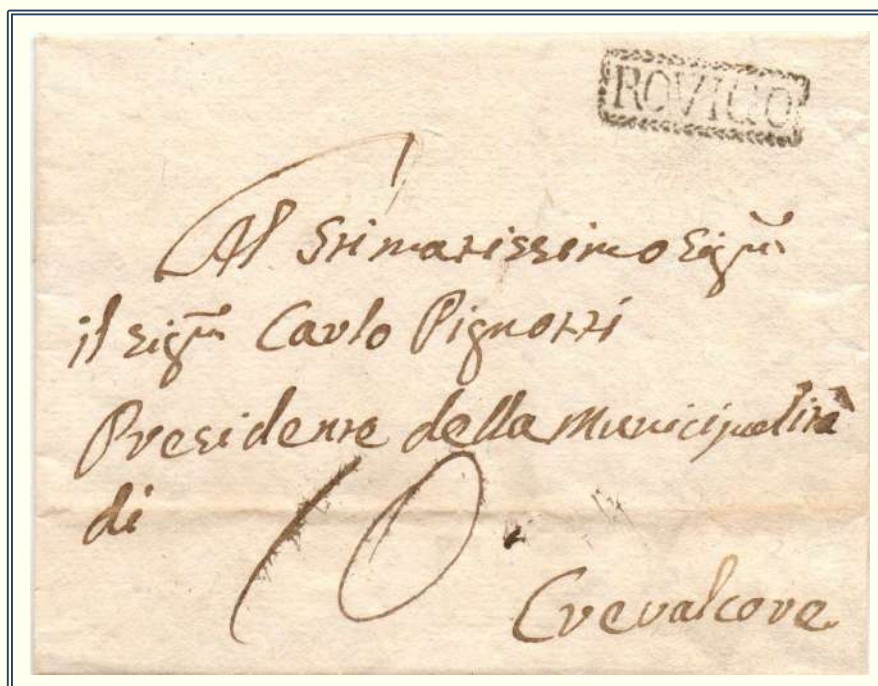 ROVIGO
Al Stimatissimo Sig.re
il Sig.re Carlo Pignozzi
Presidente della Municipalità
di
10.
Crevalcore